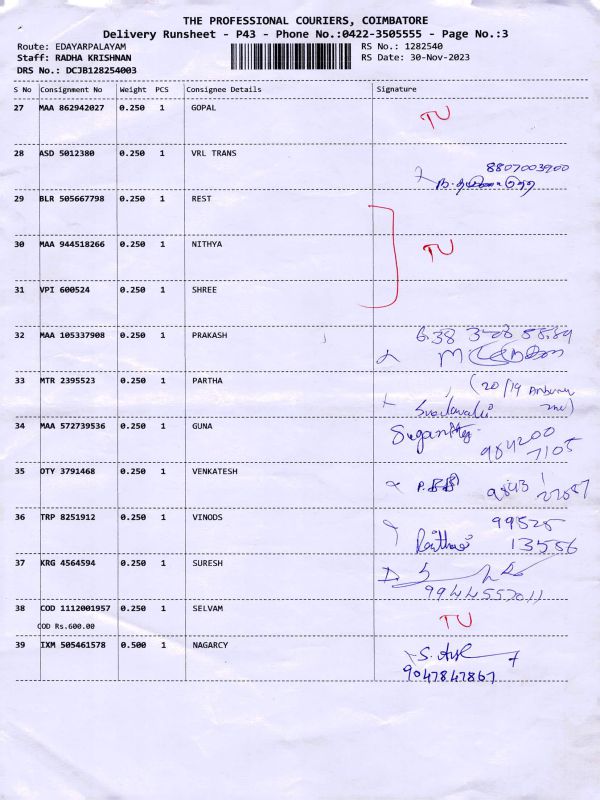 THE PROFESSIONAL COURIERS, COIMBATORE
Delivery Runsheet - P43 - Phone No.:0422-3505555 - Page No.:3
Route: EDAYARPALAYAM RS No.: 1282540
Staff: RADHA KRISHNAN RS Date: 30-Nov-2023
DRS No.: DCJB128254003
S No Consignment No Weight PCS Consignee Details Signature
27 MAA 862942027 0.250 1 GOPAL TU
28 ASD 5012380 0.250 1 VRL TRANS 8807003900
29 BLR 505667798 0.250 1 REST
30 MAA 944518266 0.250 1 NITHYA TU
31 VPI 600524 0.250 1 SHREE
32 MAA 105337908 0.250 1 PRAKASH
33 MTR 2395523 0.250 1 PARTHA (20/19
34 MAA 572739536 0.250 1 GUNA 984200
7105
35 OTY 3791468 0.250 1 VENKATESH 9843
36 TRP 8251912 0.250 1 VINODS 99525
13556
37 KRG 4564594 0.250 1 SURESH
9944557011
38 COD 1112001957 0.250 1 SELVAM TU
COD Rs.600.00
39 IXM 505461578 0.500 1 NAGARCY
9047847867